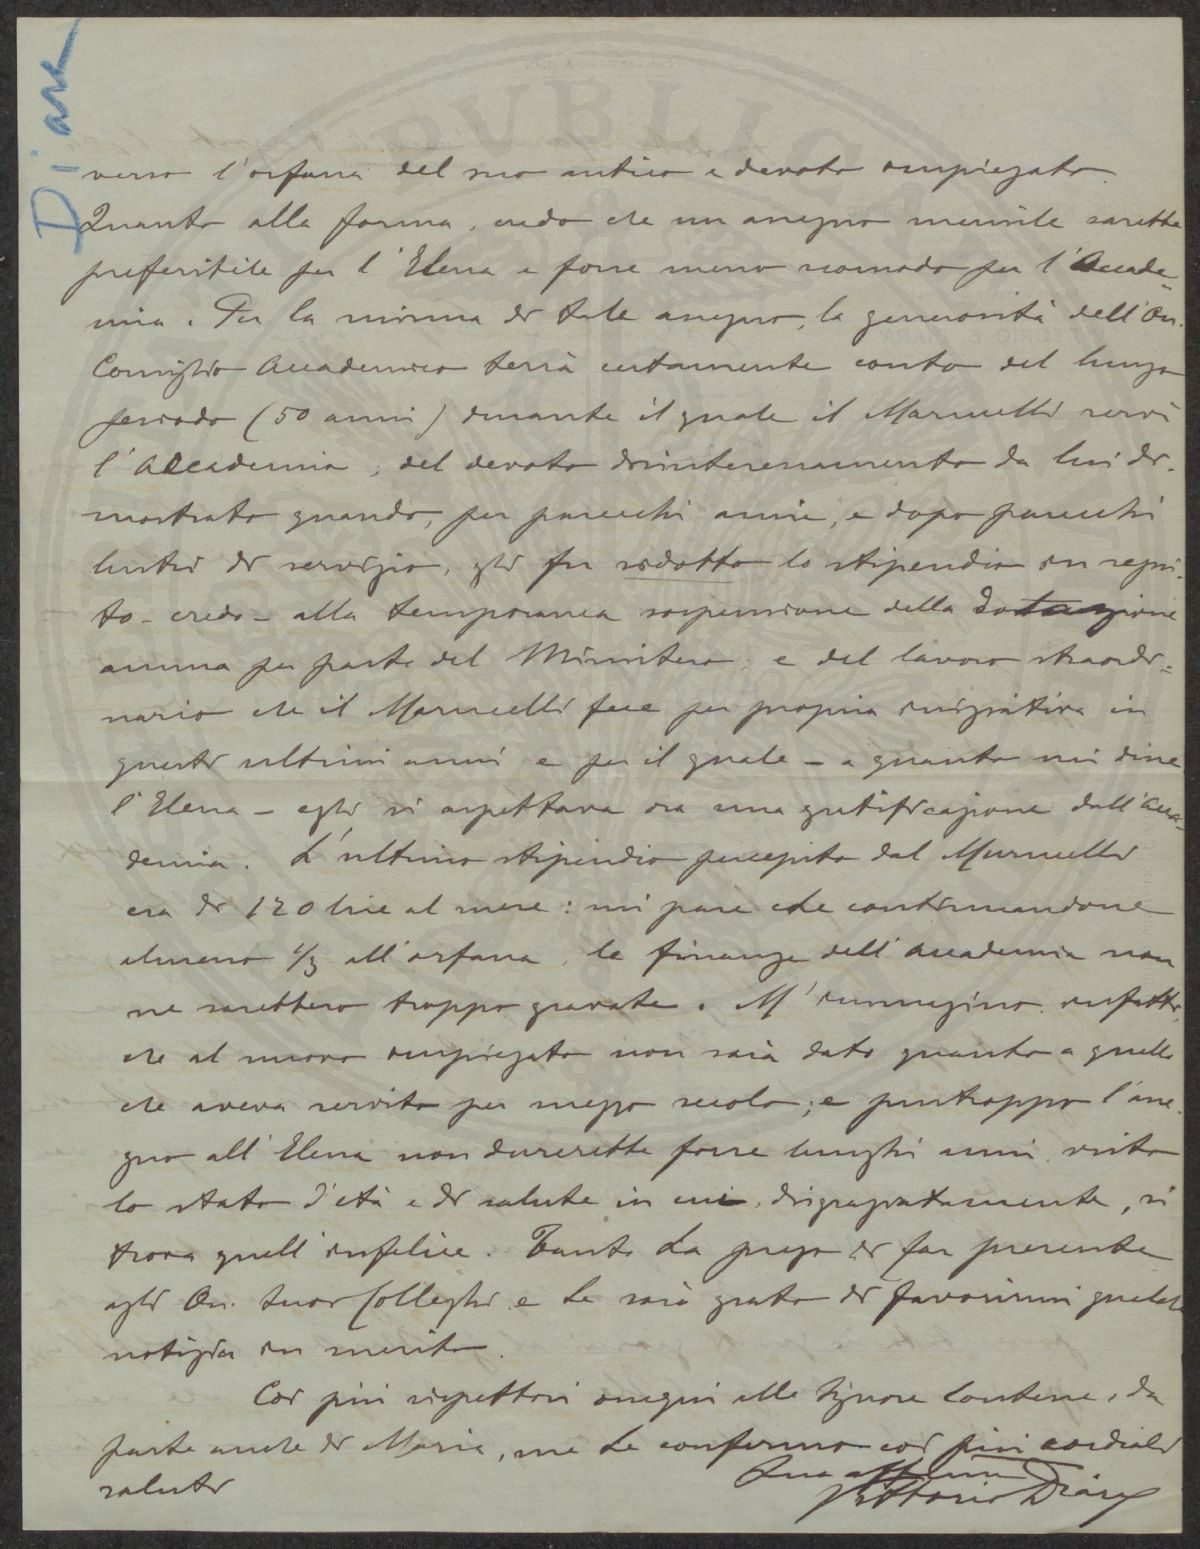 Diaz
verso l'orfana del suo antico e devoto impiegato.
Quanto alla forma, credo che un assegno mensile sarebbe
preferibile per l'Elena e forse meno scomodo per l'Accade-
mia. Per la misura di tale assegno, la generosità dell'On.
Consiglio Accademico terrà certamente conto del lungo
periodo (50 anni) durante il quale il Marucelli servì
l'Accademia, del devoto disinteressamento da lui di-
mostrato quando, per parecchi anni, e dopo parecchi
lustri di servizio, gli fu ridotto lo stipendio in segui-
to - credo - alla temporanea sospensione della dotazione
annua per parte del Ministero; e del lavoro straordi=
nario che il Marucelli fece per propria iniziativa in
questi ultimi anni e per il quale - a quanto mi disse
l'Elena - egli si aspettava ora una gratificazione dall'Acca-
demia. L'ultimo stipendio percepito dal Marucelli
era di 120 lire al mese: mi pare che continuandone
almeno 1/3 all'orfana, le finanze dell'Accademia non
ne sarebbero troppo gravate. M'immagino, infatti,
che al nuovo impiegato non sarà dato quanto a quello
che aveva servito per mezzo secolo; e purtroppo l'asse-
gno all'Elena non durerebbe forse lunghi anni, visto
lo stato d'età e di salute in cui, disgraziatamente, si
trova quell'infelice. Tanto La prego di far presente
agli On. Suoi Colleghi e Le sarò grato di favorirmi qualche
notizia in merito.
Coi più rispettosi ossequi alle Signore Contesse, da
parte anche di Maria, me Le confermo coi più cordiali
saluti
Suo aff.mo
Vittorio Diaz
PVBLICA